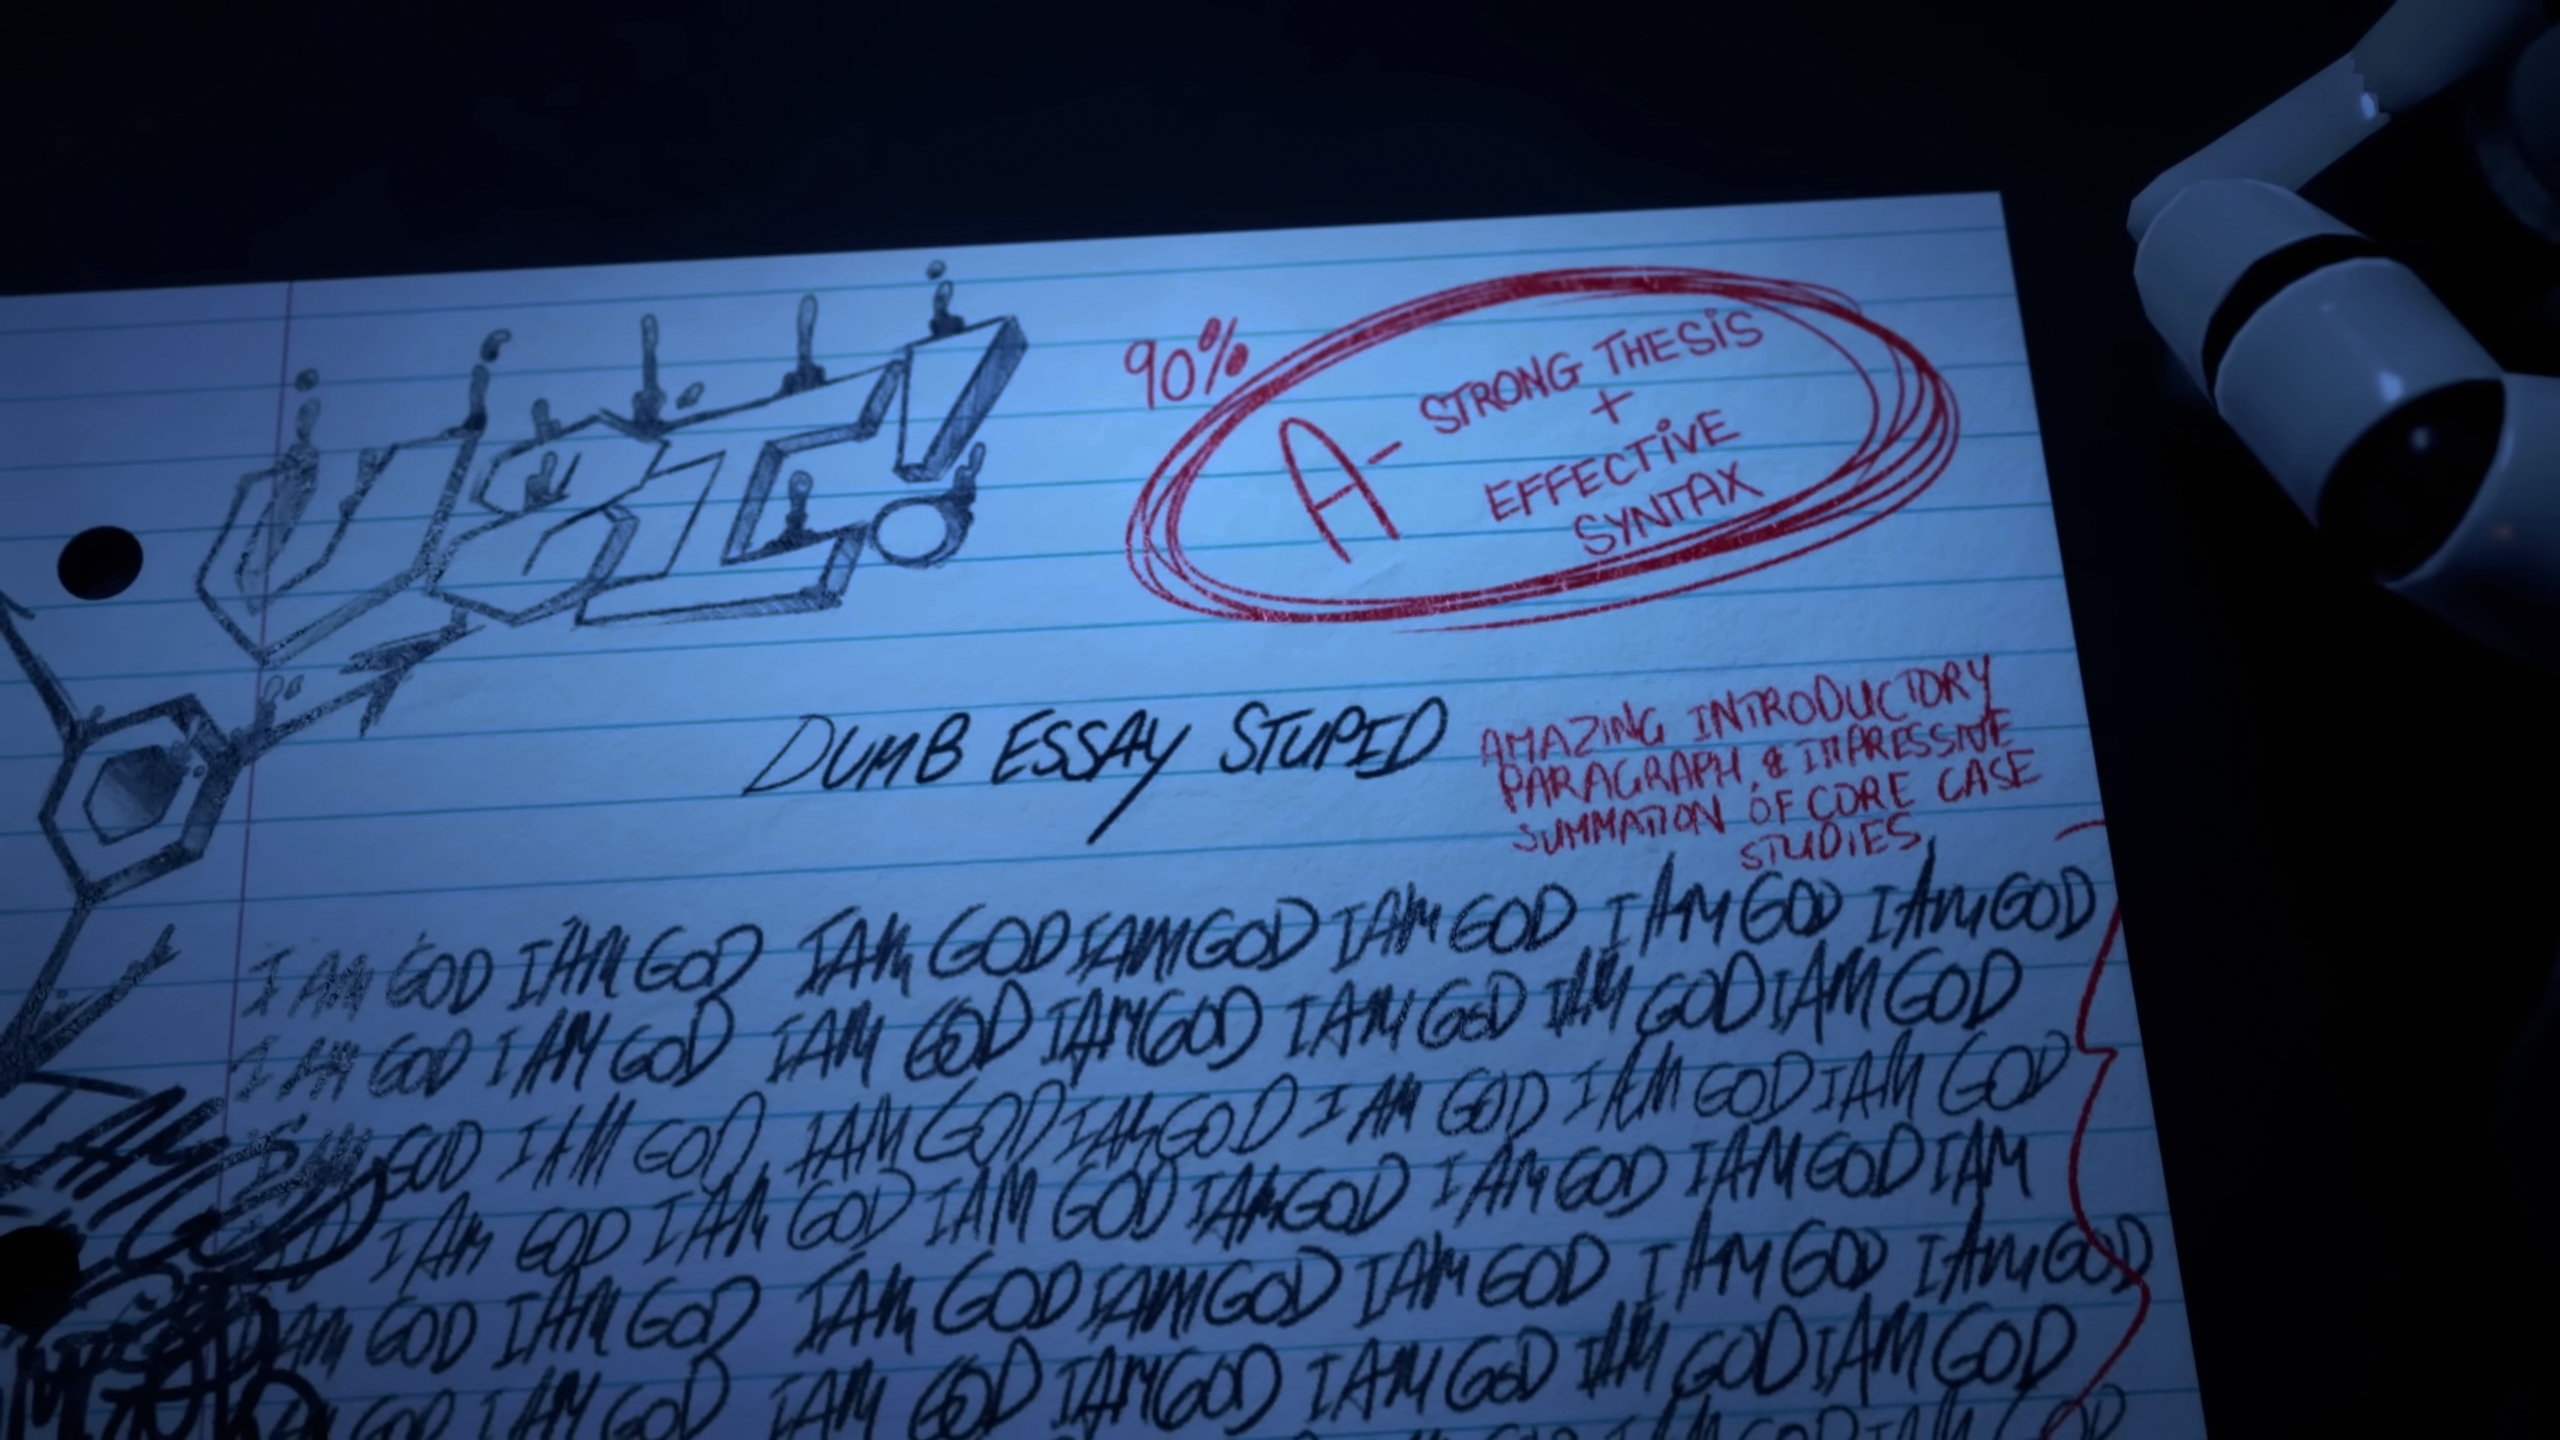 USE!
90%
A- STRONG THESIS
+
EFFECTIVE
SYNTAX
DUMB ESSAY STUPID
AMAZING INTRODUCTORY
PARAGRAPH, & IMPRESSIVE
SUMMATION OF CORE CASE
STUDIES
I AM GOD I AM GOD I AM GOD I AM GOD I AM GOD I AM GOD I AM GOD
I AM GOD I AM GOD I AM GOD I AM GOD I AM GOD I AM GOD I AM GOD
I AM GOD I AM GOD I AM GOD I AM GOD I AM GOD I AM GOD I AM GOD
I AM GOD I AM GOD I AM GOD I AM GOD I AM GOD I AM GOD I AM
I AM GOD I AM GOD I AM GOD I AM GOD I AM GOD I AM GOD
AM GOD I AM GOD I AM GOD I AM GOD I AM GOD I AM GOD I AM GOD
GOD I AM GOD I AM GOD I AM GOD I AM GOD I AM GOD I AM GOD